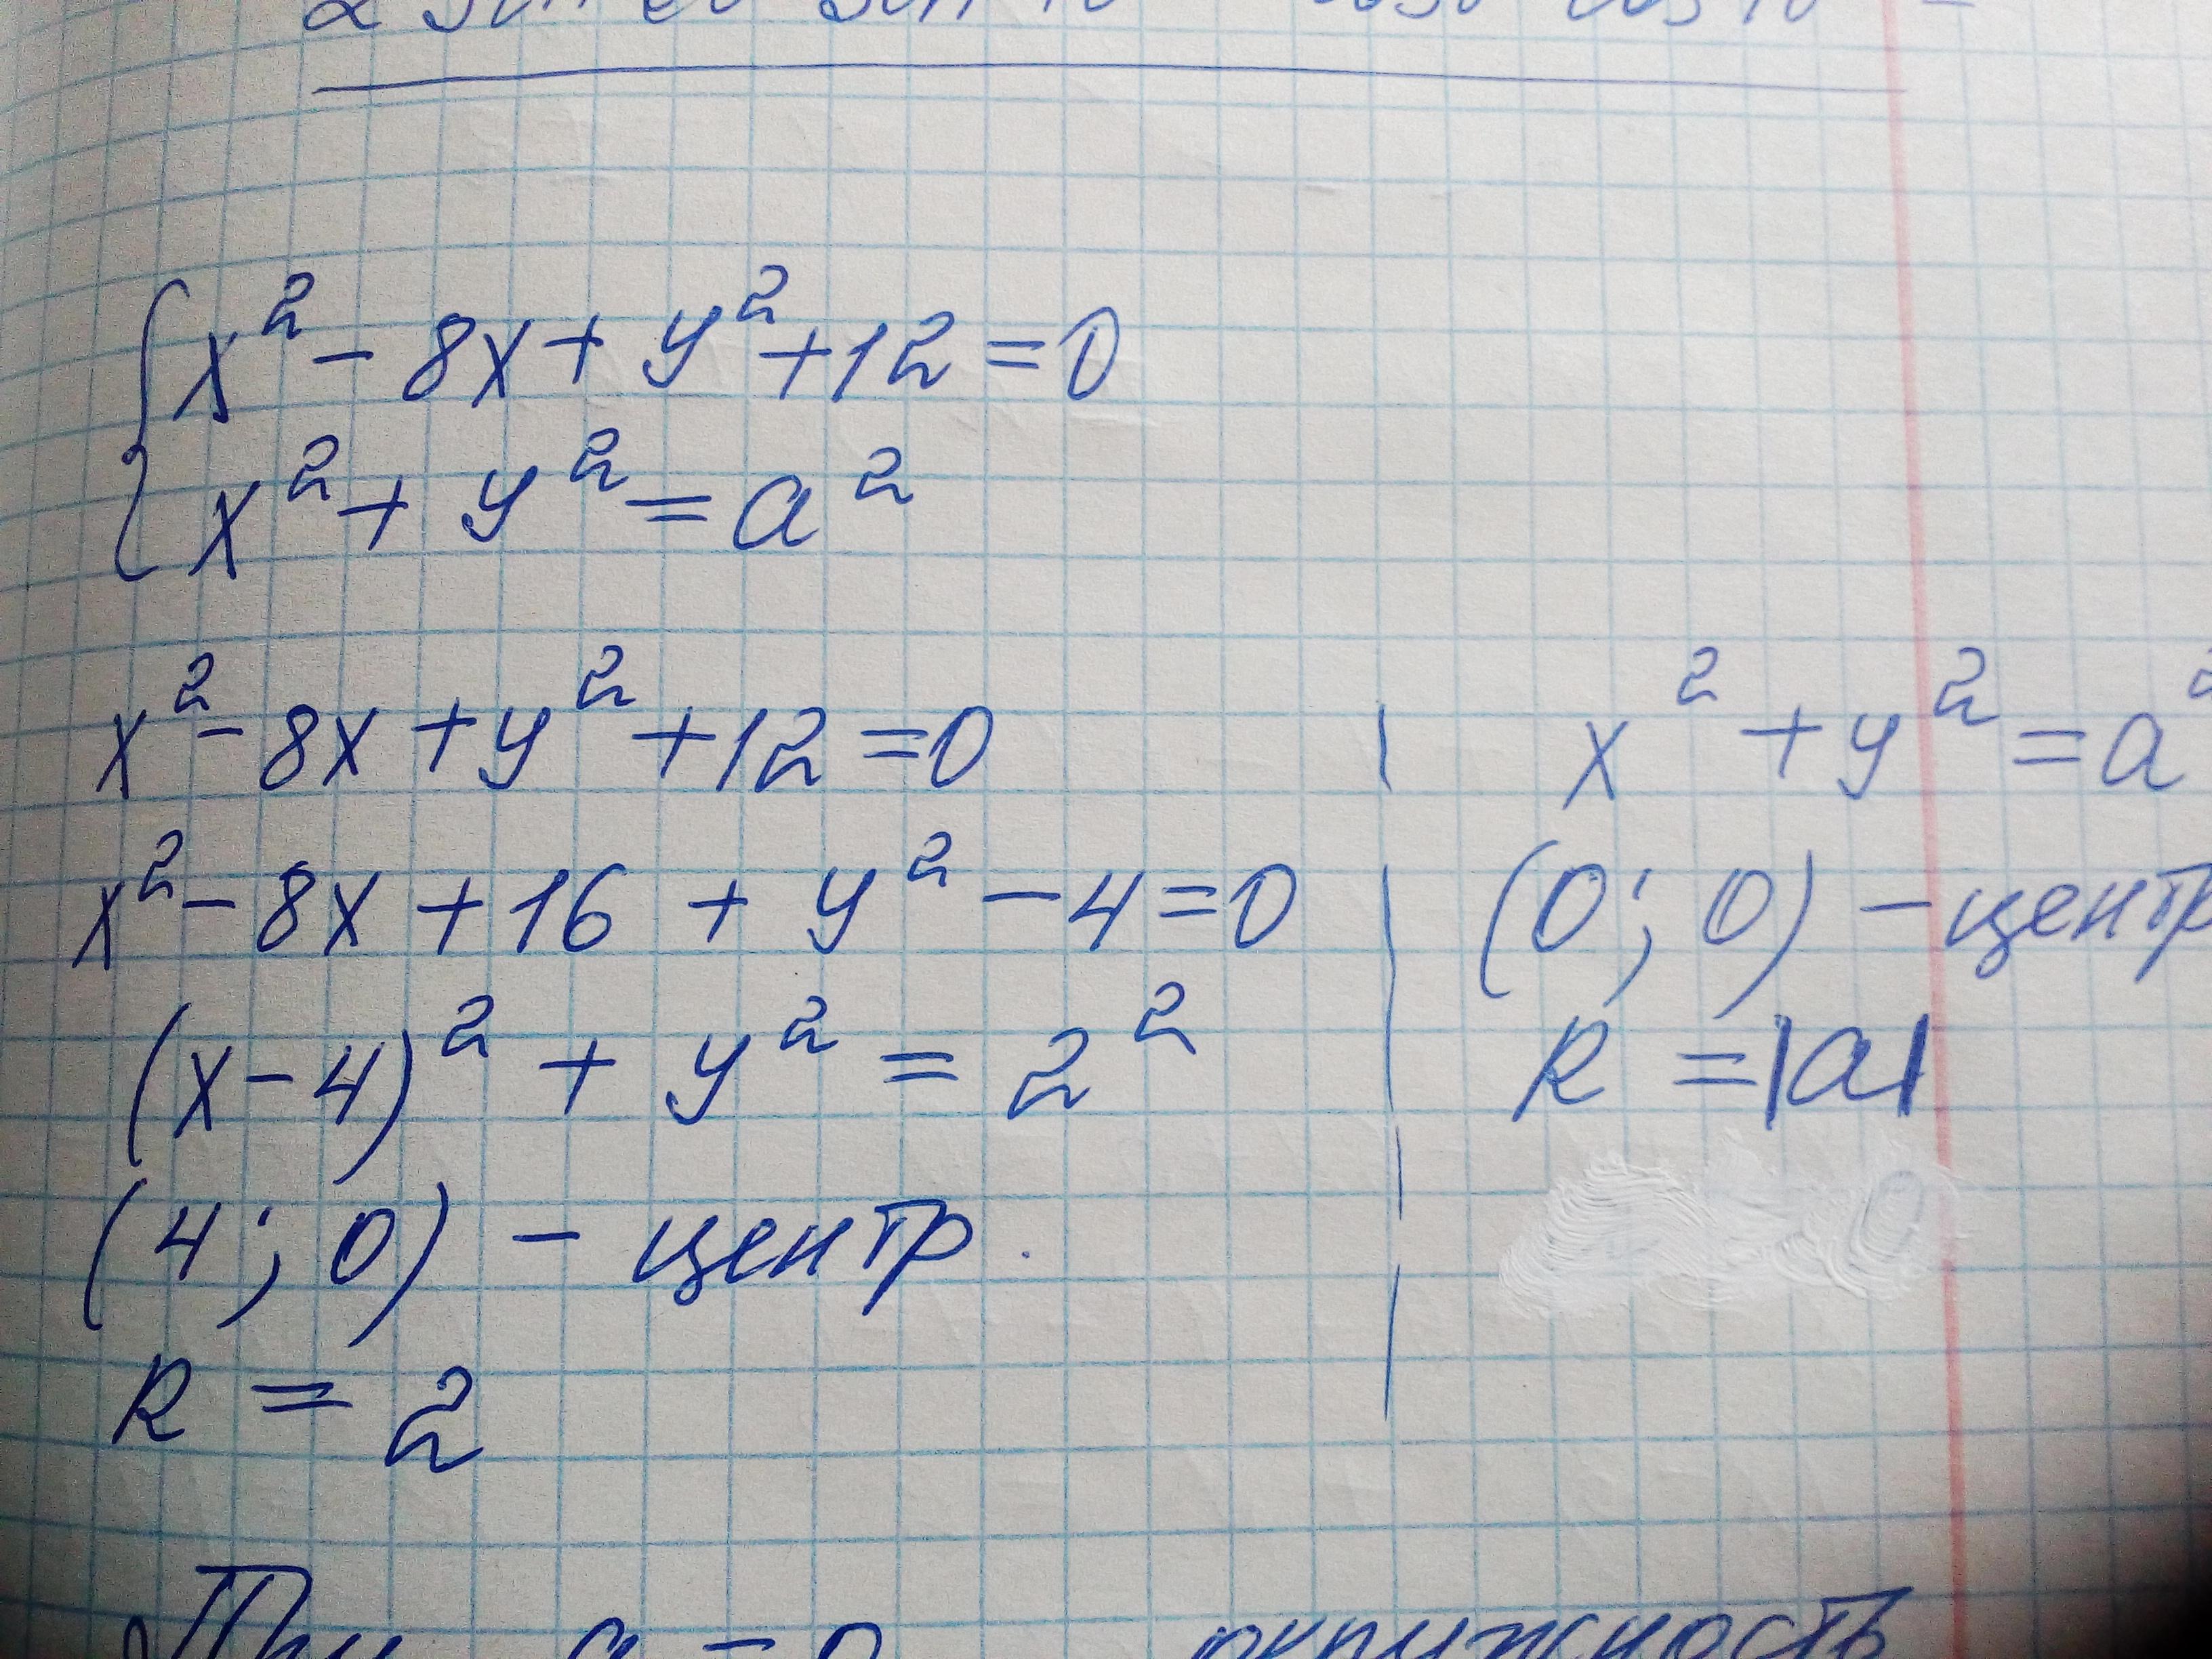 x² - 8x + y² + 12 = 0
x² + y² = a²
x² - 8x + y² + 12 = 0
x² - 8x + 16 + y² - 4 = 0
(x - 4)² + y² = 2²
(4; 0) - центр.
R = 2
x² + y² = a²
(0; 0) - центр
R = |a|
При a = 0 окружность